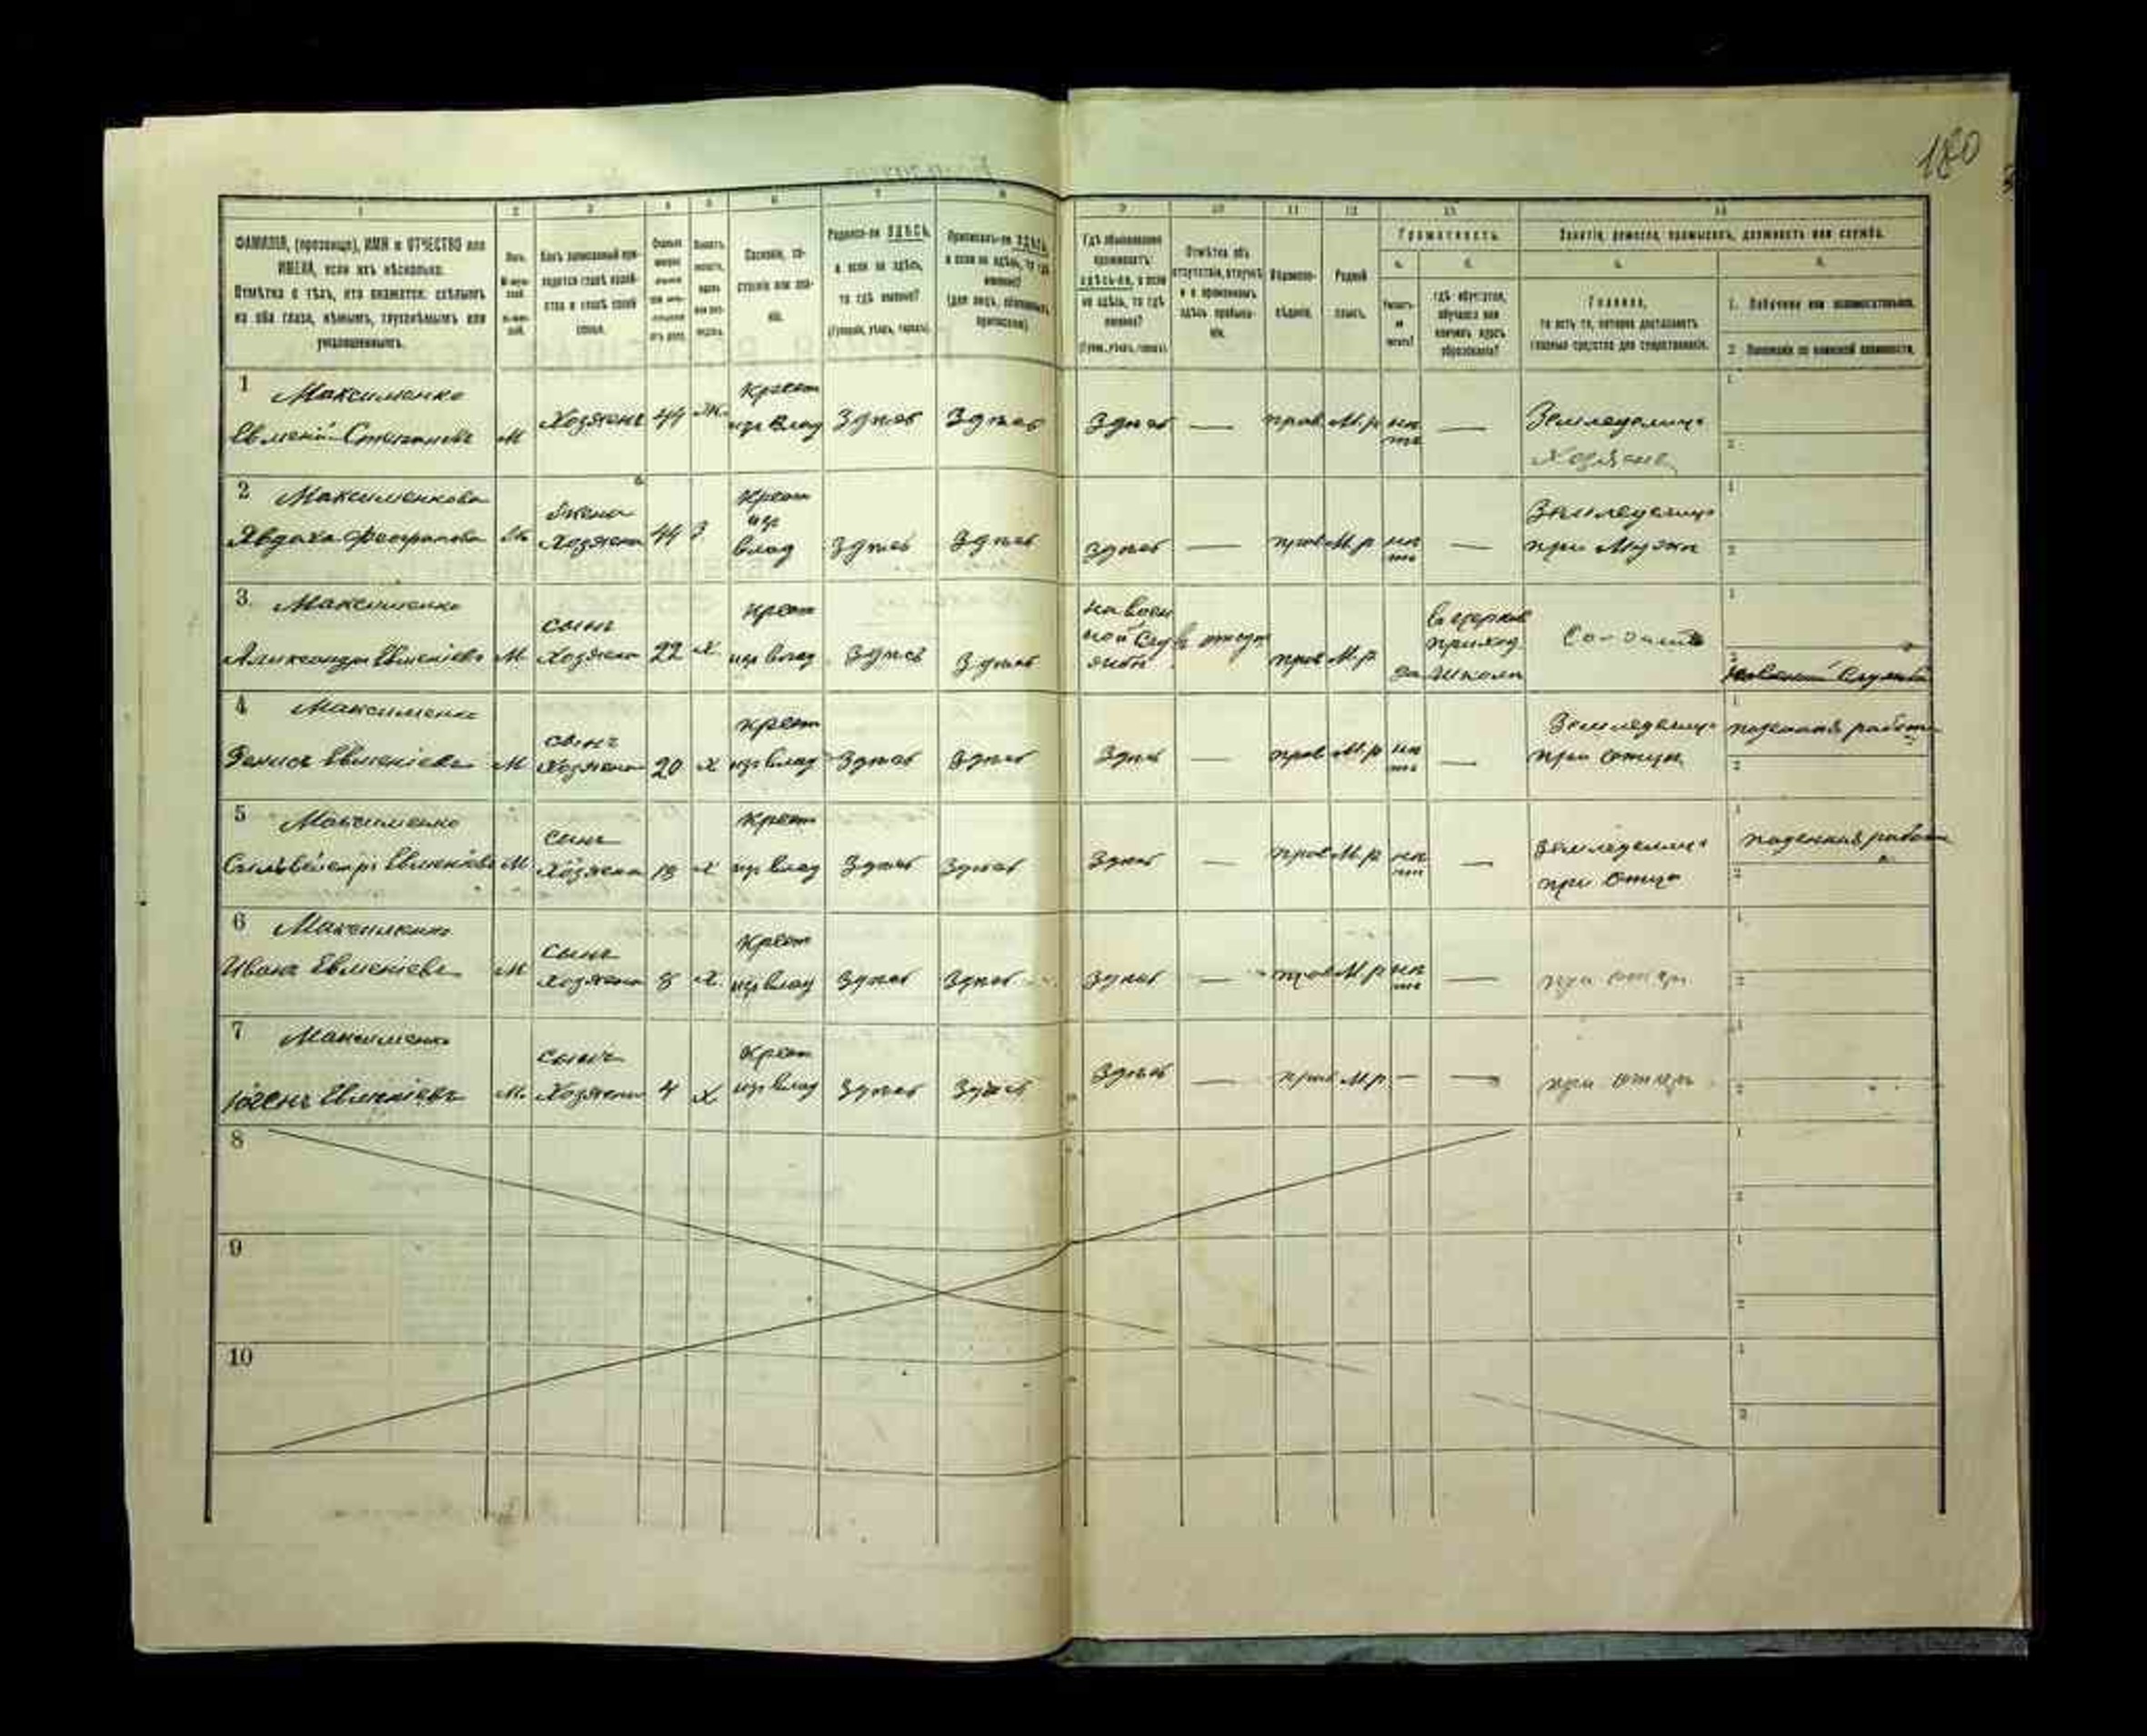 180
1 2 3 4 5 6 7 8 9 10 11 12 13 14
ФАМИЛІЯ, (прозвище), ИМЯ и ОТЧЕСТВО или
ИМЕНА, если ихъ нѣсколько.
Отмѣтка о тѣхъ, кто окажется: слѣпымъ
на оба глаза, нѣмымъ, глухонѣмымъ или
умалишеннымъ.
Полъ.
Какъ записанный при-
ходится главѣ хозяй-
ства и главѣ своей
семьи.
Сословіе, со-
стояніе или зва-
ніе.
Родился-ли ЗДѢСЬ,
а если не здѣсь,
то гдѣ именно?
(Губернія, уѣздъ, городъ).
Приписанъ-ли ЗДѢСЬ,
а если не здѣсь, то гдѣ
именно?
(для лицъ, обязанныхъ
припискою)
Гдѣ обыкновенно
проживаетъ:
здѣсь-ли, а если
не здѣсь, то гдѣ
именно?
(Губ., уѣздъ, городъ).
Отмѣтка объ
отсутствіи, отлучкѣ
и о временномъ
здѣсь пребыва-
ніи.
Вѣроиспо-
вѣданіе.
Родной
языкъ.
Грамотность.
а. б.
Умѣетъ-
ли
читать?
гдѣ обучается,
обучался или
кончилъ курсъ
образованія?
Занятіе, ремесло, промыселъ, должность или служба.
а. б.
Главное,
то есть то, которое доставляетъ
главныя средства для существованія.
1. Побочное или вспомогательное.
2. Положеніе по воинской повинности.
1 Максименко
Евменій Степановъ М Хозяинъ 44 Ж. крест из влад Здѣсь Здѣсь Здѣсь — прав М.р нѣтъ — Земледелецъ
Хозяинъ
2 Максименкова
Явдоха жена Хозяина 44 З крест из влад Здѣсь Здѣсь Здѣсь — прав М.р нѣтъ — Земледелецъ
при Мужѣ
3 Максименко
Александръ Евменіевъ М сынъ Хозяина 22 Х крест из влад Здѣсь Здѣсь на воен
ной служ
бѣ прав М.р да в церков
приход
школѣ Солдатъ
4 Максименко
Денисъ Евменіевъ М сынъ Хозяина 20 Х крест из влад Здѣсь Здѣсь Здѣсь — прав М.р нѣтъ — Земледелецъ
при отцѣ поденная работа
5 Максименко
Сильвестръ Евменіевъ М сынъ Хозяина 18 Х крест из влад Здѣсь Здѣсь Здѣсь — прав М.р нѣтъ — Земледелецъ
при отцѣ поденная работа
6 Максименко
Иванъ Евменіевъ М сынъ Хозяина 8 Х крест из влад Здѣсь Здѣсь Здѣсь — прав М.р нѣтъ — при отцѣ
7 Максименко
Евменіевъ М. сынъ Хозяина 4 Х крест из влад Здѣсь Здѣсь Здѣсь — прав М.р — — при отцѣ
8
9
10